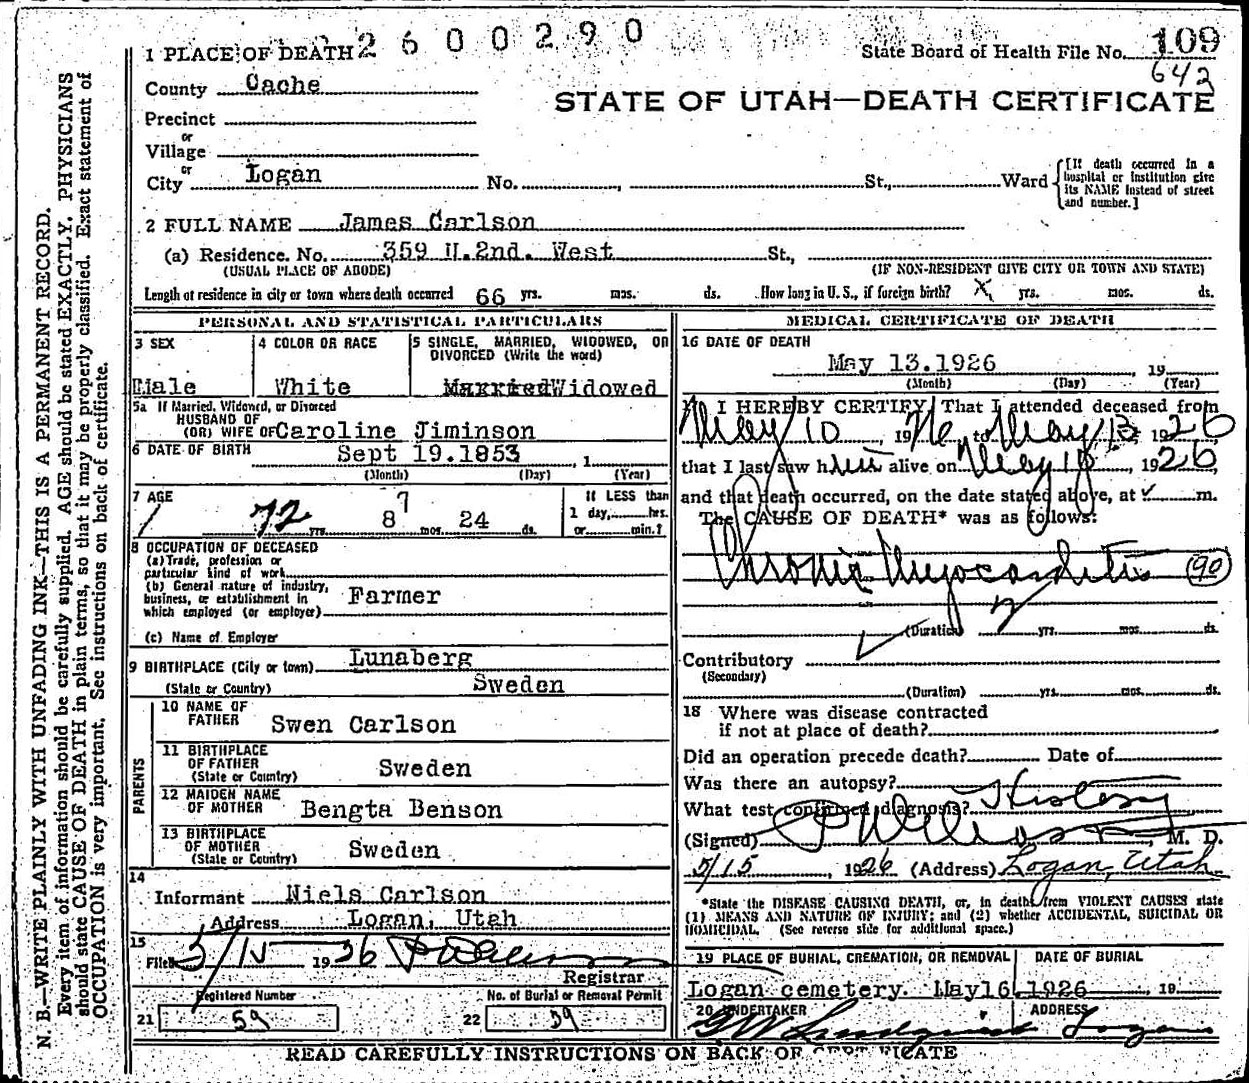 2600290
1 PLACE OF DEATH
State Board of Health File No. 109
642
County Cache
STATE OF UTAH—DEATH CERTIFICATE
Precinct
or
Village
or
City Logan No. , St., Ward
[If death occurred in a hospital or institution give its NAME instead of street and number.]
2 FULL NAME James Carlson
(a) Residence. No. 359 N.2nd. West St.,
(USUAL PLACE OF ABODE) (IF NON-RESIDENT GIVE CITY OR TOWN AND STATE)
Length of residence in city or town where death occurred 66 yrs. mos. ds. How long in U. S., if foreign birth? X yrs. mos. ds.
PERSONAL AND STATISTICAL PARTICULARS
3 SEX
Male
4 COLOR OR RACE
White
5 SINGLE, MARRIED, WIDOWED, OR DIVORCED (Write the word)
Married Widowed
5a If Married, Widowed, or Divorced
HUSBAND OF
(OR) WIFE OF Caroline Jiminson
6 DATE OF BIRTH Sept 19.1853 , 1
(Month) (Day) (Year)
7 AGE
72 yrs. 8 7 mos. 24 ds.
If LESS than
1 day, hrs.
or min.?
8 OCCUPATION OF DECEASED
(a) Trade, profession or
particular kind of work
(b) General nature of industry,
business, or establishment in
which employed (or employer) Farmer
(c) Name of Employer
9 BIRTHPLACE (City or town) Lunaberg
(State or Country) Sweden
PARENTS
10 NAME OF FATHER Swen Carlson
11 BIRTHPLACE OF FATHER
(State or Country) Sweden
12 MAIDEN NAME OF MOTHER Bengta Benson
13 BIRTHPLACE OF MOTHER
(State or Country) Sweden
14
Informant Niels Carlson
Address Logan, Utah
15
Filed 5/15 1926
Registrar
Registered Number
21 59
No. of Burial or Removal Permit
22 59
MEDICAL CERTIFICATE OF DEATH
16 DATE OF DEATH
May 13.1926 , 19
(Month) (Day) (Year)
I HEREBY CERTIFY, That I attended deceased from
May 10, 19 26, to May 13 1926
that I last saw him alive on May 10, 1926,
and that death occurred, on the date stated above, at m.
The CAUSE OF DEATH* was as follows:
Chronic Myocarditis (90)
(Duration) 2 yrs. mos. ds.
Contributory
(Secondary)
(Duration) yrs. mos. ds.
18 Where was disease contracted
if not at place of death?
Did an operation precede death? Date of
Was there an autopsy?
What test confirmed diagnosis? History
(Signed) M. D.
5/15, 1926 (Address) Logan, Utah.
*State the DISEASE CAUSING DEATH, or, in deaths from VIOLENT CAUSES state
(1) MEANS AND NATURE OF INJURY; and (2) whether ACCIDENTAL, SUICIDAL OR
HOMICIDAL. (See reverse side for additional space.)
19 PLACE OF BURIAL, CREMATION, OR REMOVAL
DATE OF BURIAL
Logan cemetery. May16.1926 , 19
20 UNDERTAKER ADDRESS
Lindquist Logan
READ CAREFULLY INSTRUCTIONS ON BACK OF CERTIFICATE
N. B.—WRITE PLAINLY WITH UNFADING INK—THIS IS A PERMANENT RECORD.
Every item of information should be carefully supplied. AGE should be stated EXACTLY. PHYSICIANS
should state CAUSE OF DEATH in plain terms, so that it may be properly classified. Exact statement of
OCCUPATION is very important. See instructions on back of certificate.